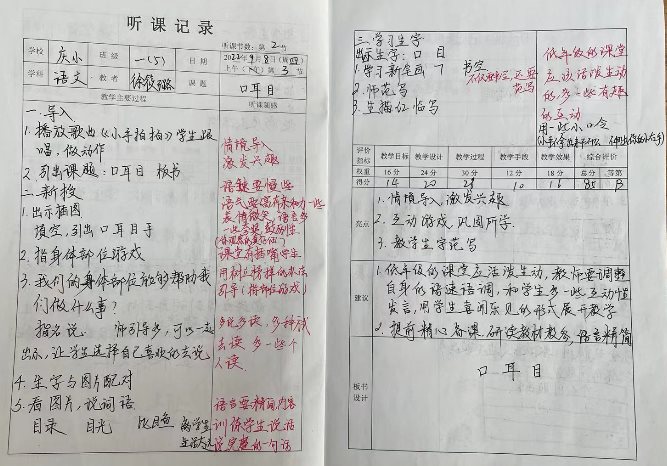 听课记录
听课节数：第2节
学校 庆小 班级 一(5) 日期 2022年9月8日(周四)
上午(下午)第3节
学科 语文 教者 徐筱璐 课题 口耳目
教学主要过程 听课随感
一、导入
1. 播放歌曲《小手拍拍》学生跟
唱，做动作
2. 引出课题：口耳目 板书
二、新授
1. 出示插图
填空，引出口耳目手
2. 指身体部位游戏
3. 我们的身体部位能够帮助我
们做什么事？
指名说。 师引导多，可以一起
出示，让学生选择自己喜欢的去说
4. 生字与图片配对
5. 看图片，说词语
目录 目光 比目鱼
情境导入
激发兴趣
语速要慢些
课堂有插嘴学生
用树立榜样的办法
引导（指部位游戏）
多说多读，多种形式
去读 多一些个
人读
语言要精简内容
训练学生说话
说完整的一句话
三、学习生字
出示生字：口 目
1. 学习新笔画 ㇆ 书空
2. 师范写
3. 生描红临写
低年级的课堂
应该活泼生动
的，多一些有趣
的互动
用一些小口令
评价指标 教学目标 教学设计 教学过程 教学手段 教学效果 综合评价
权重 16分 24分 30分 12分 18分 总分 等第
得分 14 20 25 10 16 85 B
亮点
1. 情境导入，激发兴趣
2. 互动游戏，巩固所学
3. 教学生字范写
建议
1. 低年级的课堂应活泼生动，教师要调整
自身的语速语调，和学生多一些互动性
发言，用学生喜闻乐见的形式展开教学
2. 提前精心备课，研读教材教参，语言精简
板书设计
口 耳 目